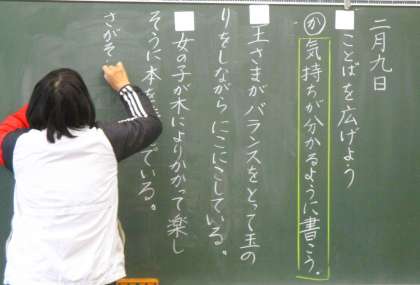 二月九日
ことばを広げよう
か 気持ちが分かるように書こう。
王さまがバランスをとって玉の
りをしながらにこにこしている。
女の子が木によりかかって楽し
そうに本を でいる。
さがそ